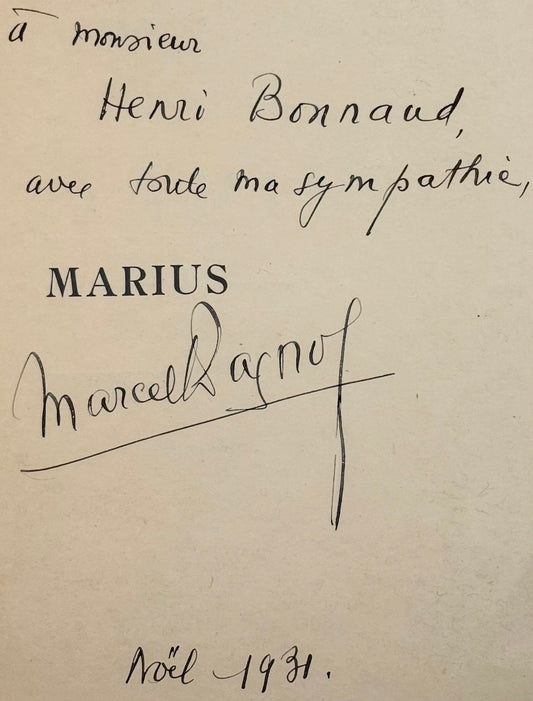 à monsieur
Henri Bonnaud,
avec toute ma sympathie,
MARIUS
Marcel Pagnol
Noël 1931.